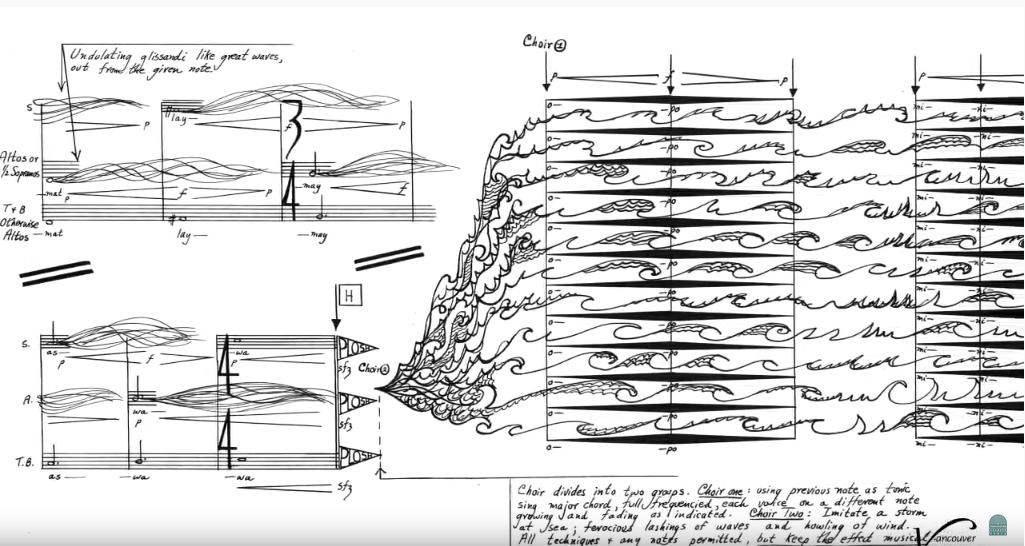 Undulating glissandi like great waves,
out from the given note.
S
lay
p
f
p
3
4
Altos or
½ Sopranos
mat
p
f
p
may
f
T + B
Otherwise
Altos
mat
lay
may
Choir ①
p
f
p
p
H
S.
as
p
f
p
wa
PLOSH
sfz
Choir ②
4
4
A.
wa
p
PLOSH
sfz
T.B.
as
wa
wa
PLOSH
sfz
o
po
mi
ni
o
po
mi
ni
o
po
mi
ni
o
po
mi
ni
o
po
mi
ni
o
po
mi
ni
o
po
mi
ni
o
po
mi
ni
o
po
mi
ni
o
po
mi
ni
o
po
mi
ni
o
po
mi
ni
Choir divides into two groups. Choir one: using previous note as tonic
sing major chord, full frequencied, each voice on a different note
growing and fading as indicated. Choir Two: Imitate a storm
at sea; ferocious lashings of waves and howling of wind.
All techniques + any notes permitted, but keep the effect musical
Vancouver